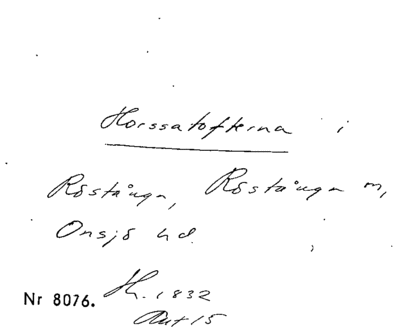 Horssatofterna i
Röstånga, Röstånga m,
Onsjö hd.
Nr 8076. H. 1832
Akt 15